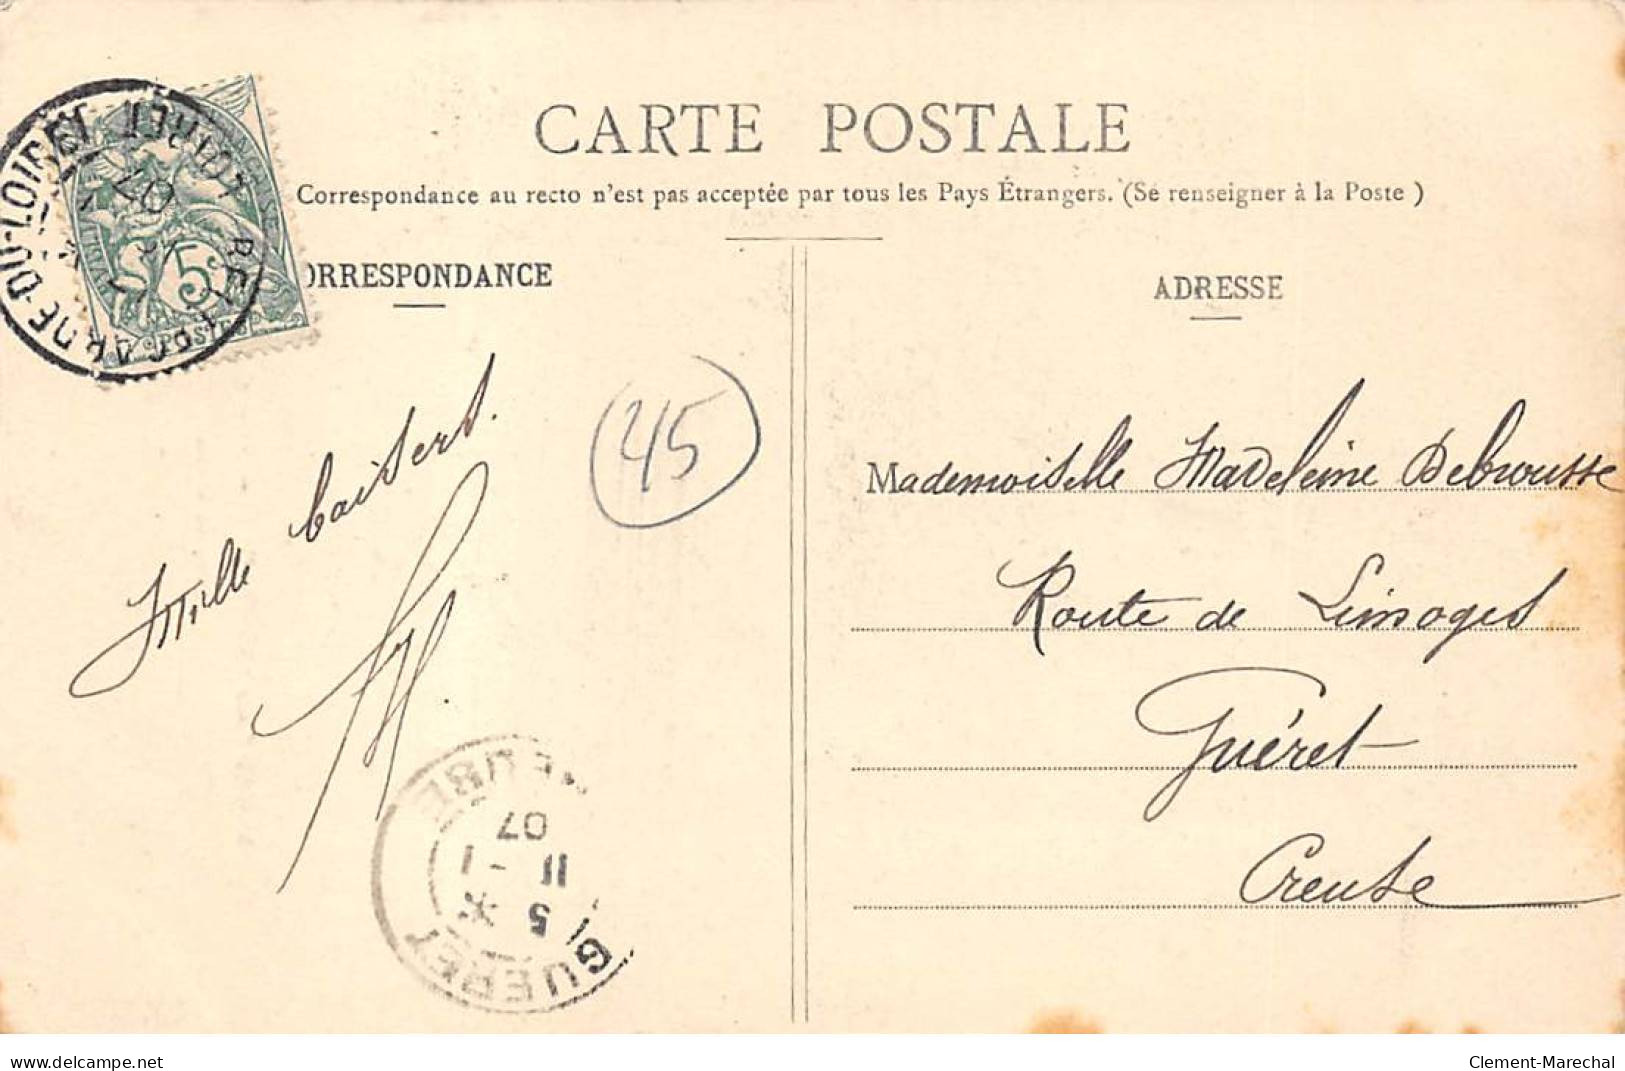 CARTE POSTALE
Correspondance au recto n'est pas acceptée par tous les Pays Étrangers. (Se renseigner à la Poste )
ORRESPONDANCE
ADRESSE
5c
POSTES
LOIRET
07
45
Mille baisers.
Mademoiselle Madeleine Debrousse
Route de Limoges
Guéret
Creuse
GUERET
5 *
11 - 1
07
www.delcampe.net
Clement-Marechal